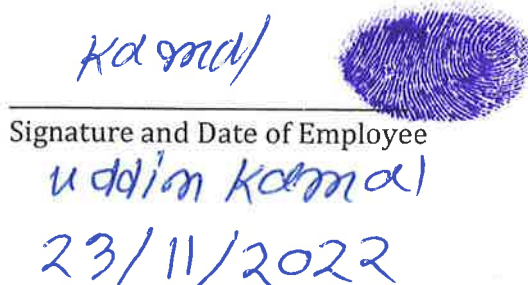 Kamal
Signature and Date of Employee
uddin Kamal
23/11/2022